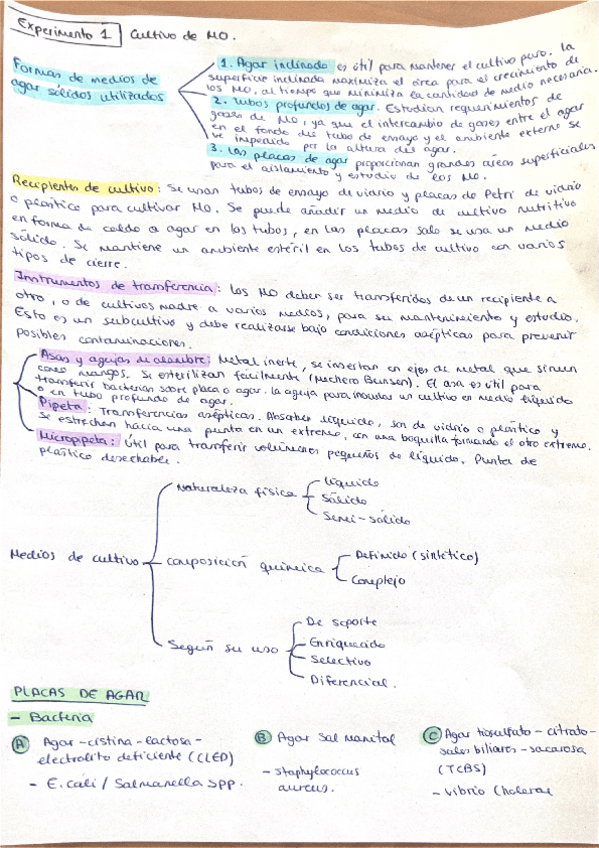 Experimento 1 Cultivo de MO.
Formas de medios de
agar sólidos utilizados
1. Agar inclinado es útil para mantener el cultivo puro. La
superficie inclinada maximiza el área para el crecimiento de
los MO, al tiempo que minimiza la cantidad de medio necesaria.
2. Tubos profundos de agar. Estudian requerimientos de
gases de MO, ya que el intercambio de gases entre el agar
en el fondo del tubo de ensayo y el ambiente externo se
ve impedido por la altura del agar.
3. Las placas de agar proporcionan grandes áreas superficiales
para el aislamiento y estudio de los MO.
Recipientes de cultivo: Se usan tubos de ensayo de vidrio y placas de Petri de vidrio
o plástico para cultivar MO. Se puede añadir un medio de cultivo nutritivo
en forma de caldo o agar en los tubos, en las placas solo se usa un medio
sólido. Se mantiene un ambiente estéril en los tubos de cultivo con varios
tipos de cierre.
Instrumentos de transferencia: Los MO deben ser transferidos de un recipiente a
otro, o de cultivos madre a varios medios, para su mantenimiento y estudio.
Esto es un subcultivo y debe realizarse bajo condiciones asépticas para prevenir
posibles contaminaciones.
Asas y agujas de alambre: Metal inerte, se insertan en ejes de metal que sirven
como mangos. Se esterilizan fácilmente (Mechero Bunsen). El asa es útil para
transferir bacterias sobre placa o agar. La aguja para inocular un cultivo en medio líquido
o en tubo profundo de agar.
Pipeta: Transferencias asépticas. Absorben líquido, son de vidrio o plástico y
se estrechan hacia una punta en un extremo, con una boquilla formando el otro extremo.
Micropipeta: Útil para transferir volúmenes pequeños de líquido. Punta de
plástico desechable.
Medios de cultivo
Naturaleza física
líquido
Sólido
Semi-sólido
composición química
Definido (sintético)
Complejo
Según su uso
De soporte
Enriquecido
Selectivo
Diferencial.
PLACAS DE AGAR
- Bacteria
A Agar-cistina-lactosa-
electrolito deficiente (CLED)
- E. coli / Salmonella SPP.
B Agar Sal Manitol
- Staphylococcus
aureus.
C Agar tiosulfato - citrato -
sales biliares - sacarosa
(TCBS)
- Vibrio Cholerae